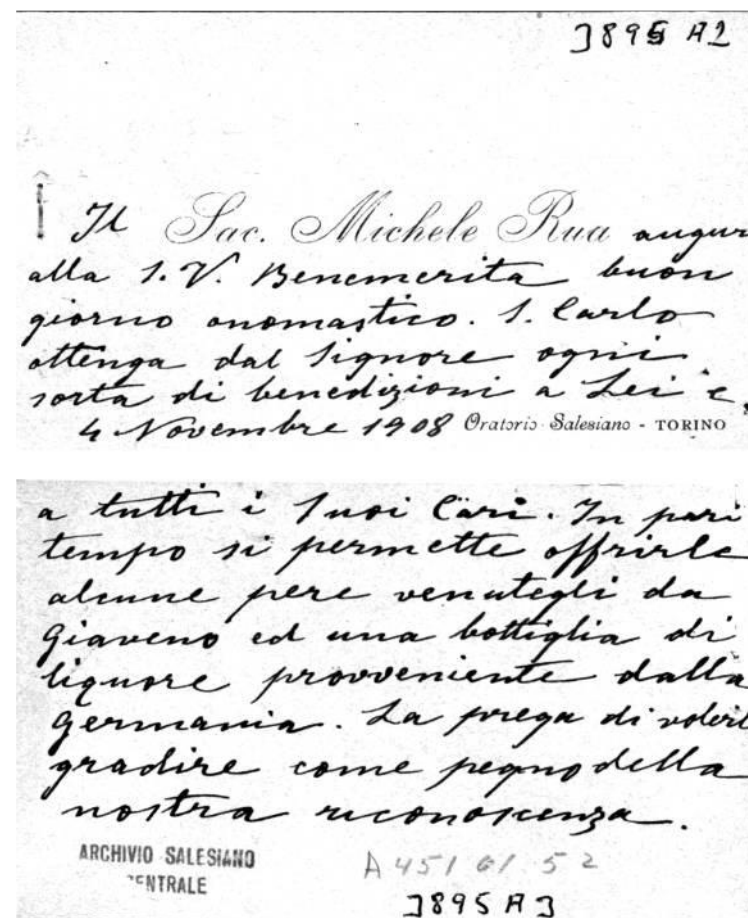 3895 A2
Il Sac. Michele Rua augur
alla S. V. Benemerita buon
giorno onomastico. S. Carlo
ottenga dal Signore ogni
sorta di benedizioni a Lei e
4 Novembre 1908 Oratorio Salesiano - TORINO
a tutti i Suoi Cari. In pari
tempo si permette offrirle
alcune pere venutegli da
Giaveno ed una bottiglia di
liquore proveniente dalla
Germania. La prega di volerl
gradire come pegno della
nostra riconoscenza.
ARCHIVIO SALESIANO
CENTRALE
A 451 01 52
3895 A3